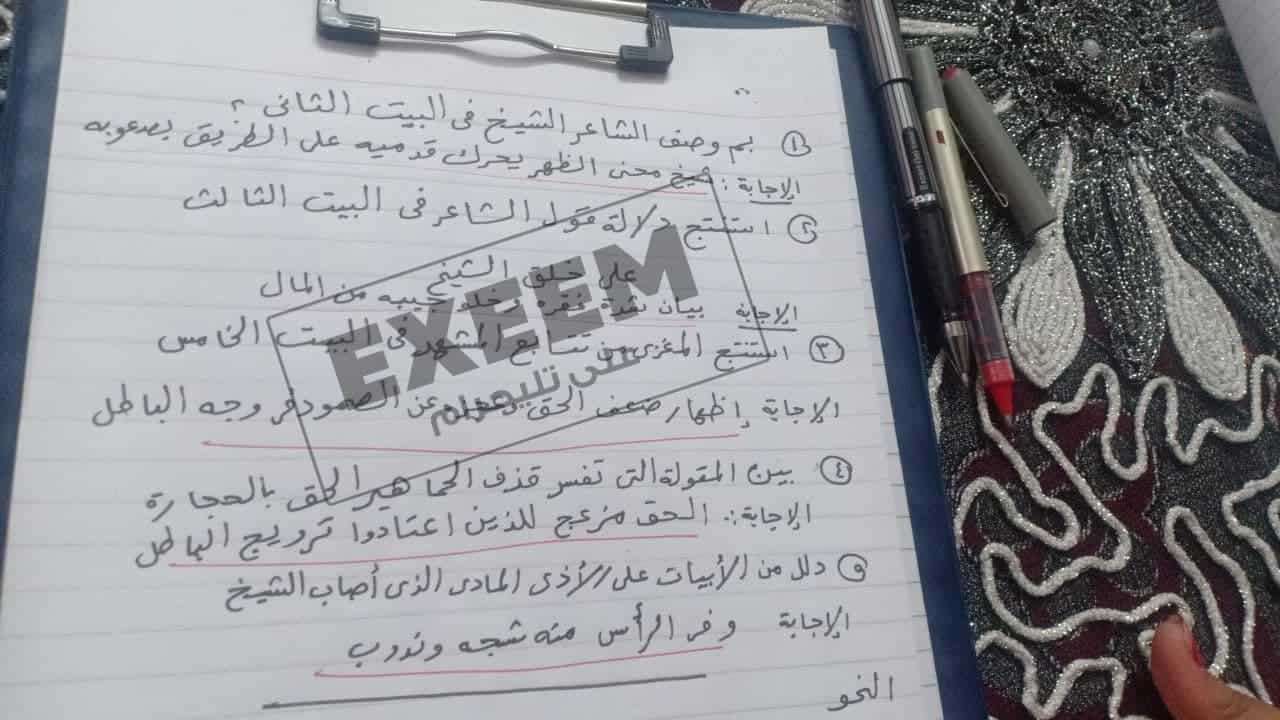 ① بم وصف الشاعر الشيخ فى البيت الثانى ؟
الإجابة : شيخ محنى الظهر يحرك قدميه على الطريق بصعوبه
② استنتج دلالة قول الشاعر فى البيت الثالث
على خلق الشيخ
الإجابة بيان شدة فقره جيبه من المال
③ استنتج المغزى من تتابع المشهد فى البيت الخامس
الإجابة إظهار ضعف الحق عن الصمود فى وجه الباطل
④ بين المقولة التى تفسر قذف الجماهير الحق بالحجارة
الإجابة : الحق مزعج للذين اعتادوا ترويج الباطل
⑤ دلل من الأبيات على الأذى المادى الذى أصاب الشيخ
الإجابة وفى الرأس منه شجه وندوب
النحو
EXEEM
على تليجرام